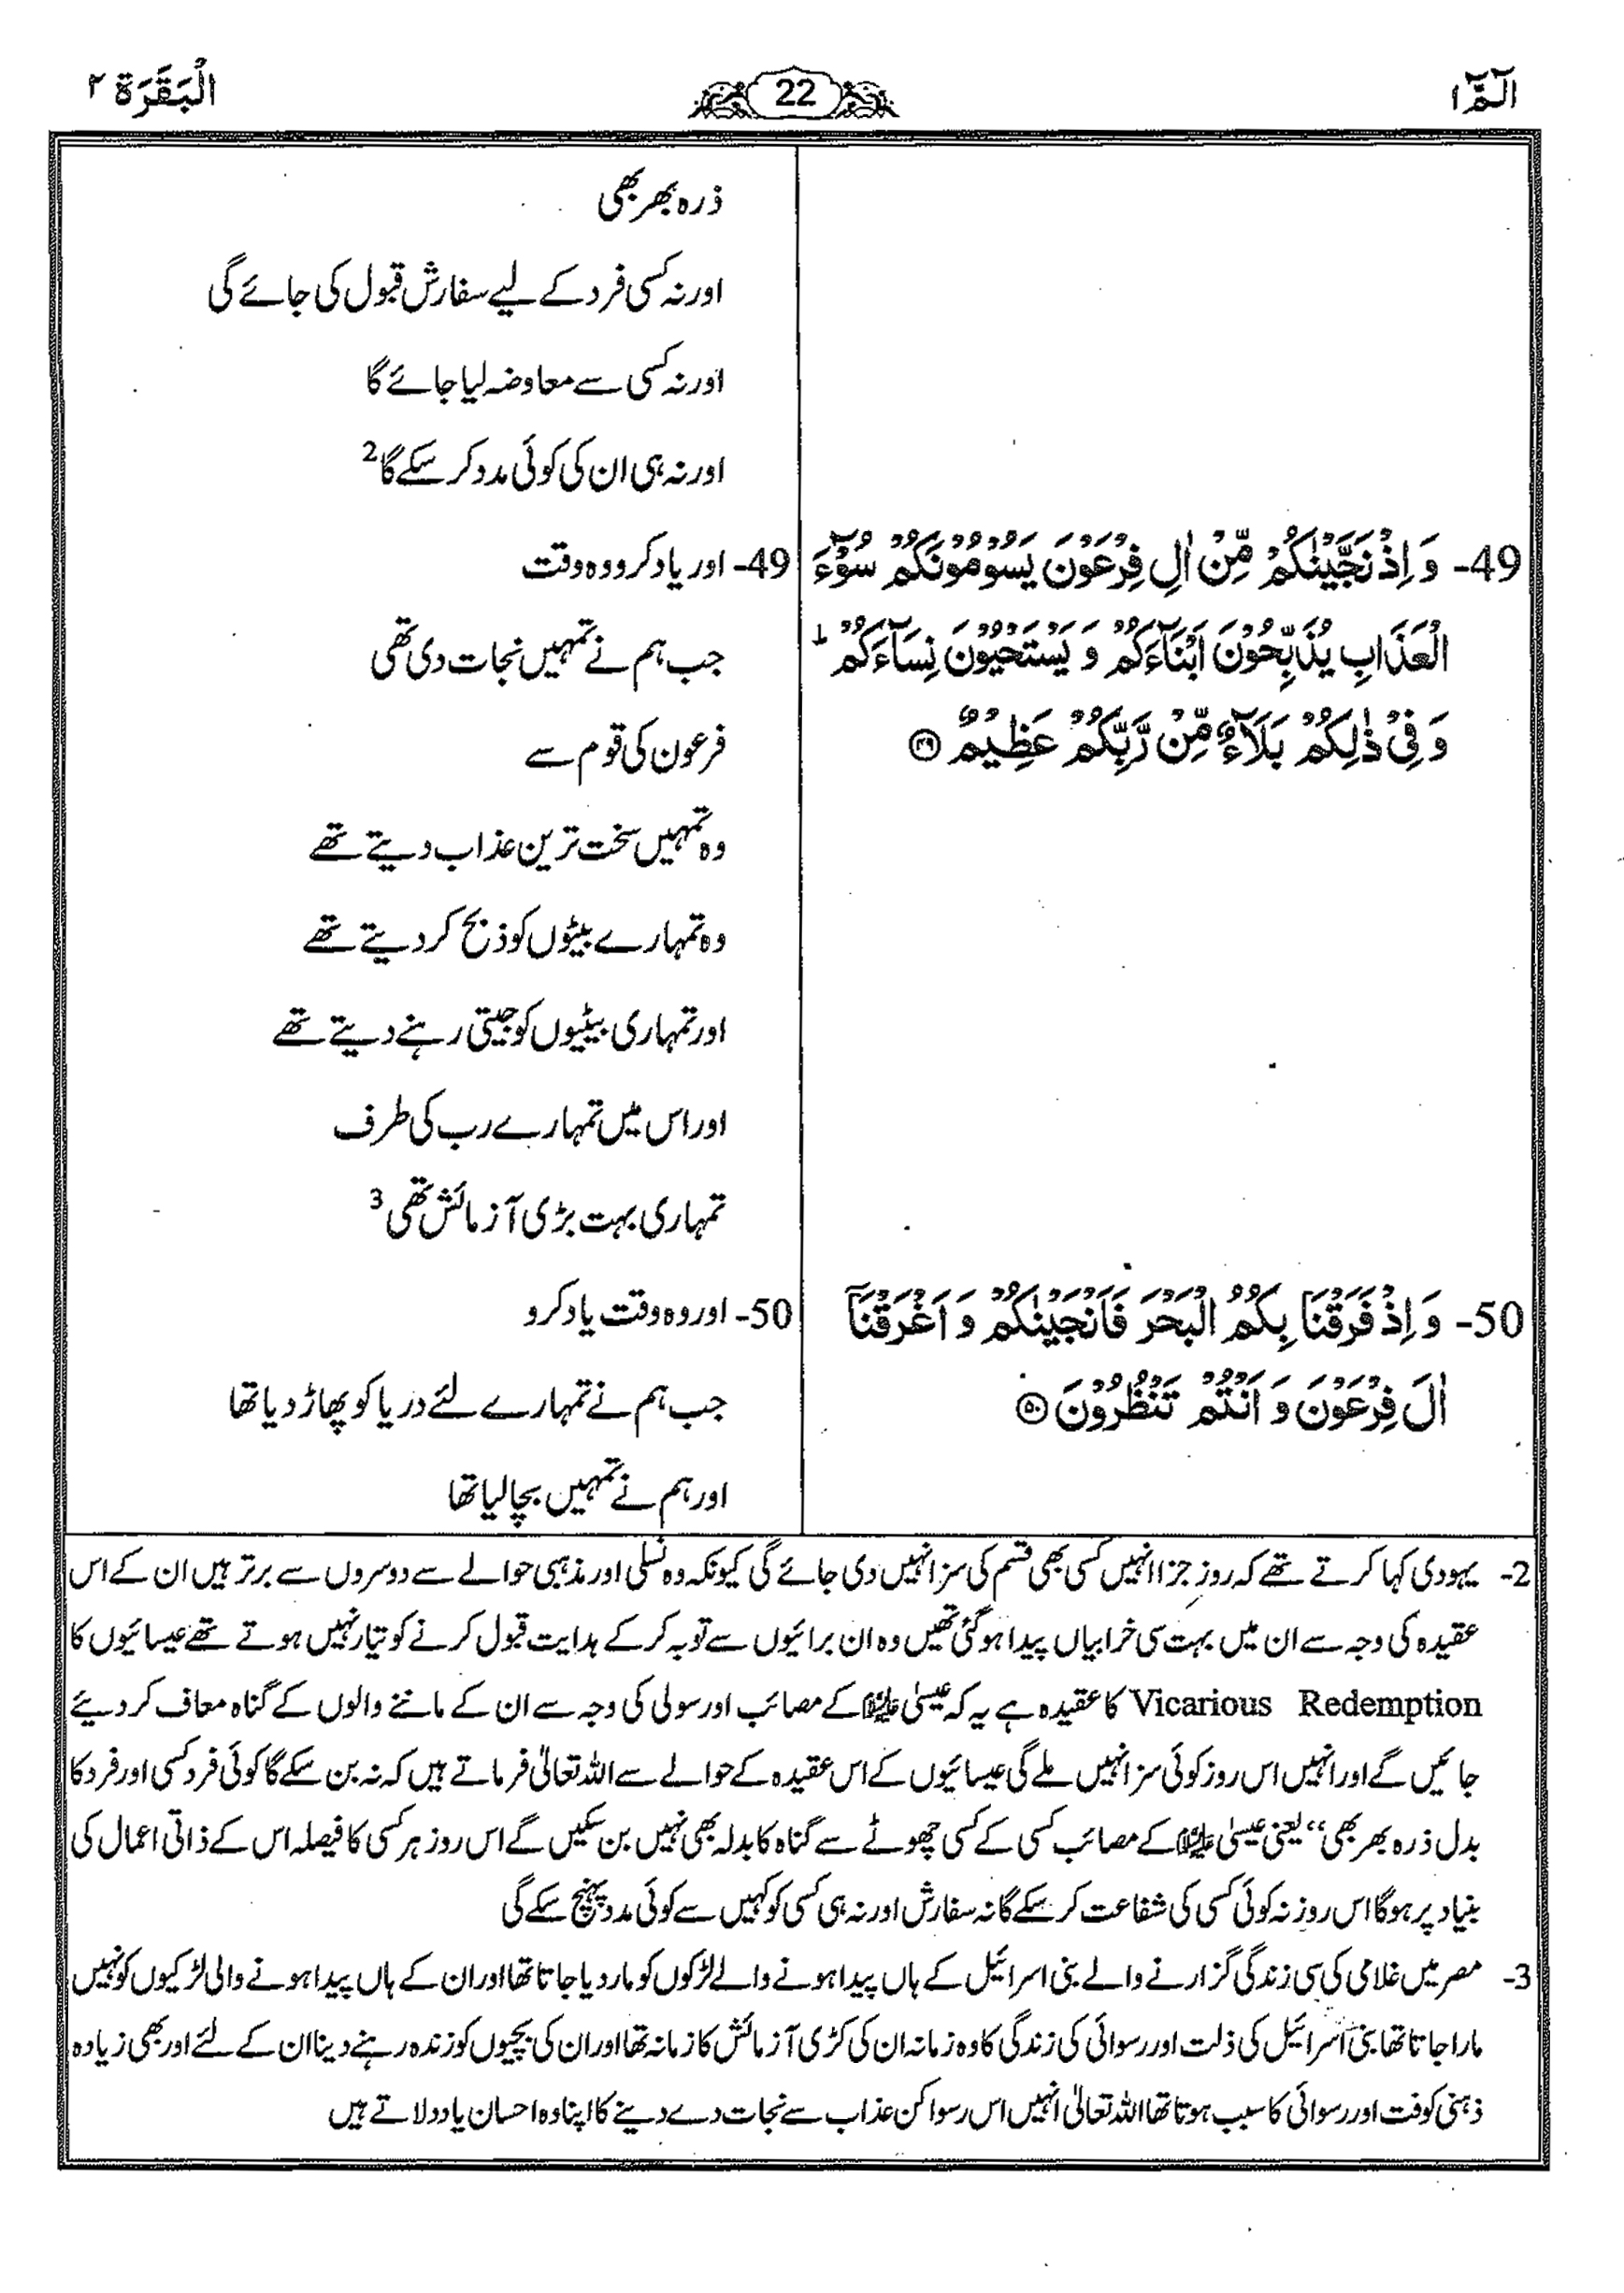 الٓمّٓ ۱
22
الْبَقَرَة ۲
ذرہ بھر بھی
اور نہ کسی فرد کے لیے سفارش قبول کی جائے گی
اور نہ کسی سے معاوضہ لیا جائے گا
اور نہ ہی ان کی کوئی مدد کر سکے گا2
49- وَ اِذْ نَجَّيْنٰكُمْ مِّنْ اٰلِ فِرْعَوْنَ يَسُوْمُوْنَكُمْ سُوْٓءَ
الْعَذَابِ يُذَبِّحُوْنَ اَبْنَآءَكُمْ وَ يَسْتَحْيُوْنَ نِسَآءَكُمْ ؕ
وَ فِيْ ذٰلِكُمْ بَلَآءٌ مِّنْ رَّبِّكُمْ عَظِيْمٌ ۴۹
49- اور یاد کرو وہ وقت
جب ہم نے تمہیں نجات دی تھی
فرعون کی قوم سے
وہ تمہیں سخت ترین عذاب دیتے تھے
وہ تمہارے بیٹوں کو ذبح کر دیتے تھے
اور تمہاری بیٹیوں کو جیتی رہنے دیتے تھے
اور اس میں تمہارے رب کی طرف
تمہاری بہت بڑی آزمائش تھی3
50- وَ اِذْ فَرَقْنَا بِكُمُ الْبَحْرَ فَاَنْجَيْنٰكُمْ وَ اَغْرَقْنَآ
اٰلَ فِرْعَوْنَ وَ اَنْتُمْ تَنْظُرُوْنَ ۵۰
50- اور وہ وقت یاد کرو
جب ہم نے تمہارے لئے دریا کو پھاڑ دیا تھا
اور ہم نے تمہیں بچا لیا تھا
2- یہودی کہا کرتے تھے کہ روز جزا انہیں کسی بھی قسم کی سزا نہیں دی جائے گی کیونکہ وہ نسلی اور مذہبی حوالے سے دوسروں سے برتر ہیں ان کے اس
عقیدہ کی وجہ سے ان میں بہت سی خرابیاں پیدا ہو گئی تھیں وہ ان برائیوں سے توبہ کر کے ہدایت قبول کرنے کو تیار نہیں ہوتے تھے عیسائیوں کا
Vicarious Redemption کا عقیدہ ہے یہ کہ عیسیٰ علیہ السلام کے مصائب اور سولی کی وجہ سے ان کے ماننے والوں کے گناہ معاف کر دیئے
جائیں گے اور انہیں اس روز کوئی سزا نہیں ملے گی عیسائیوں کے اس عقیدہ کے حوالے سے اللہ تعالیٰ فرماتے ہیں کہ نہ بن سکے گا کوئی فرد کسی اور فرد کا
بدل ذرہ بھر بھی“ یعنی عیسیٰ علیہ السلام کے مصائب کسی کے کسی چھوٹے سے گناہ کا بدلہ بھی نہیں بن سکیں گے اس روز ہر کسی کا فیصلہ اس کے ذاتی اعمال کی
بنیاد پر ہو گا اس روز نہ کوئی کسی کی شفاعت کر سکے گا نہ سفارش اور نہ ہی کسی کو کہیں سے کوئی مدد پہنچ سکے گی
3- مصر میں غلامی کی سی زندگی گزارنے والے بنی اسرائیل کے ہاں پیدا ہونے والے لڑکوں کو مار دیا جاتا تھا اور ان کے ہاں پیدا ہونے والی لڑکیوں کو نہیں
مارا جاتا تھا بنی اسرائیل کی ذلت اور رسوائی کی زندگی کا وہ زمانہ ان کی کڑی آزمائش کا زمانہ تھا اور ان کی بچیوں کو زندہ رہنے دینا ان کے لئے اور بھی زیادہ
ذہنی کوفت اور رسوائی کا سبب ہوتا تھا اللہ تعالیٰ انہیں اس رسوا کن عذاب سے نجات دے دینے کا اپنا وہ احسان یاد دلاتے ہیں